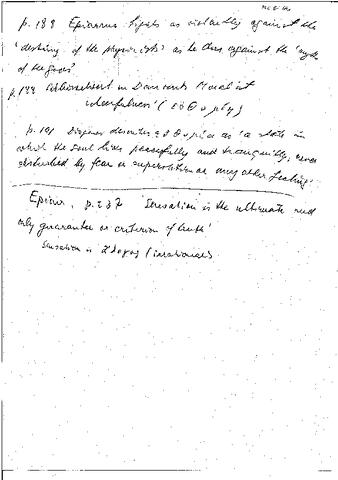 p. 188 Epicurus fights as violently against the
'destiny of the physicists' as he does against the 'myths
of the gods'
p. 188 in Democritus
cheerfulness' ( εὐθυμίη )
p. 191 Diogenes describes εὐθυμία as 'a state in
which the soul lives peacefully and tranquilly, never
disturbed by fear or superstition or any other feeling'
Epicurus, p. 232 Sensation is the ultimate and
only guarantee or criterion of truth'
Sensation is ἄλογος (irrational)